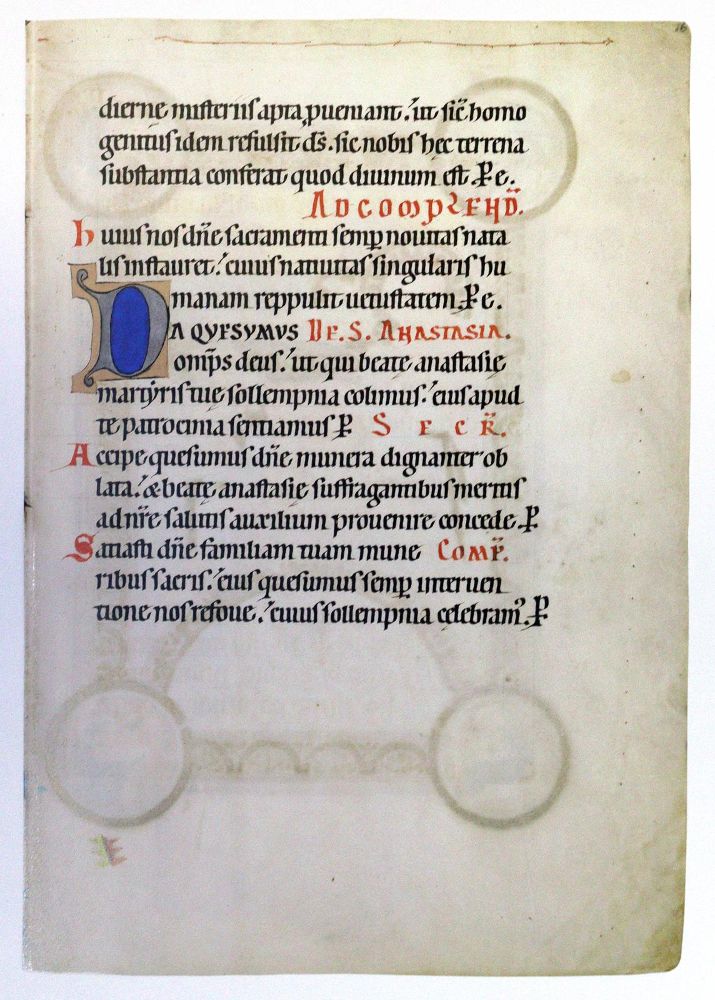 16
dierne misteriis apta ꝓueniant. ut sic̄ homo
genitus idem refulsit d̄s. sic nobis hec terrena
substantia conferat quod diuinum est. P̄ e.
AD COMPLEND̄.
Huius nos dn̄e sacramenti semꝑ nouitas nata
lis instauret. cuius natiuitas singularis hu
manam reppulit uetustatem. P̄ e.
DA QVESVMVS DE. S. ANASTASIA.
omp̄s deus. ut qui beatę anastasię
martẏris tue sollempnia colimus. eius apud
te patrocinia sentiamus P̄ SECR̄.
Accipe quesumus dn̄e munera dignanter ob
lata. & beatę anastasię suffragantibus meritis
ad nr̄e salutis auxilium prouenire concede. P̄
Satiasti dn̄e familiam tuam mune COMP̄.
ribus sacris. eius quesumus semꝑ interuen
tione nos refoue. cuius sollempnia celebram᾽. P̄